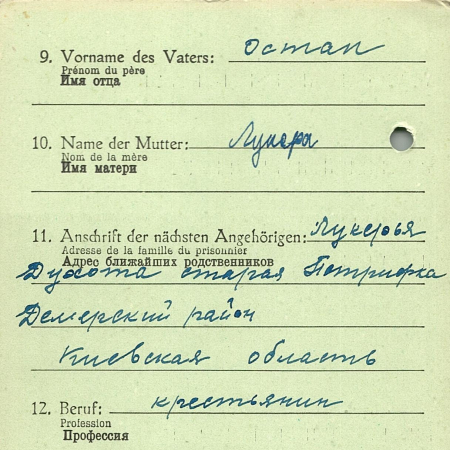 9. Vorname des Vaters: Остап
Prénom du père
Имя отца
10. Name der Mutter: Лукера
Nom de la mère
Имя матери
11. Anschrift der nächsten Angehörigen: Лукерья
Adresse de la famille du prisonnier
Адрес ближайших родственников
Духота старая Петрифка
Демерский район
Киевская область
12. Beruf: крестьянин
Profession
Профессия